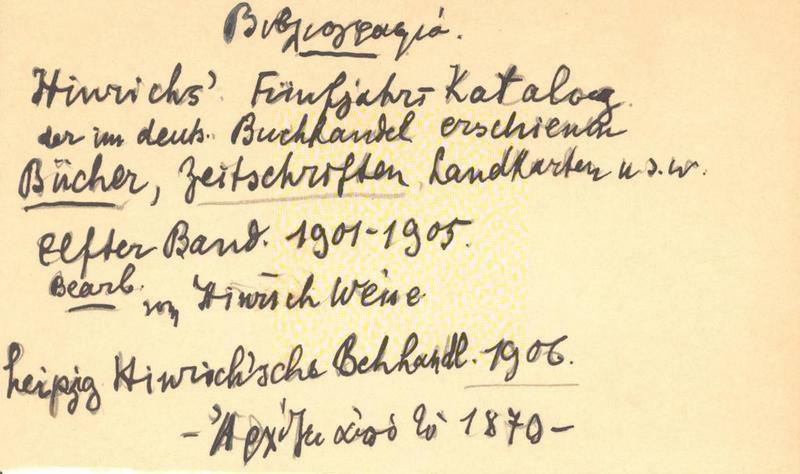 Βιβλιογραφία.
Hinrichs' Fünfjahrs-Katalog
der im deuts. Buchhandel erschienen
Bücher, Zeitschriften, Landkarten u.s.w.
Elfter Band. 1901-1905.
Bearb. von Hinrich Weise
Leipzig Hinrich'sche Bchhandl. 1906.
- Ἀρχίζει ἀπὸ τὸ 1870 -